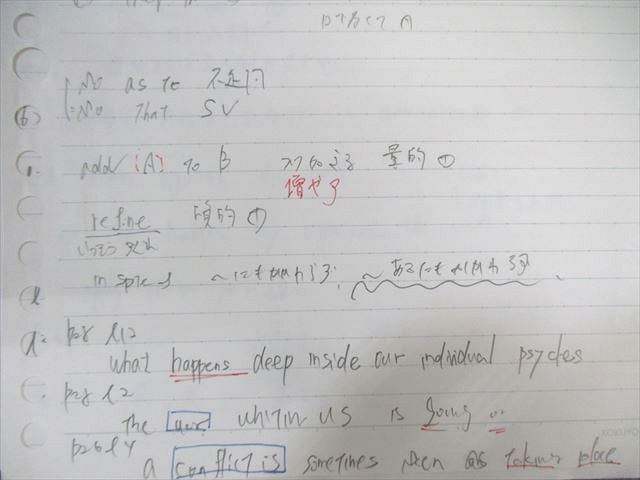 so as to 不定詞
= so that SV
add (A) to B 付け加える 量的 ①
増やす
refine 質的 ①
in spite of ～にもかかわらず, ～あるにもかかわらず
what happens deep inside our individual psyches
p25 l2
the war within us is going on
p26 l4
a conflict is sometimes seen as taking place